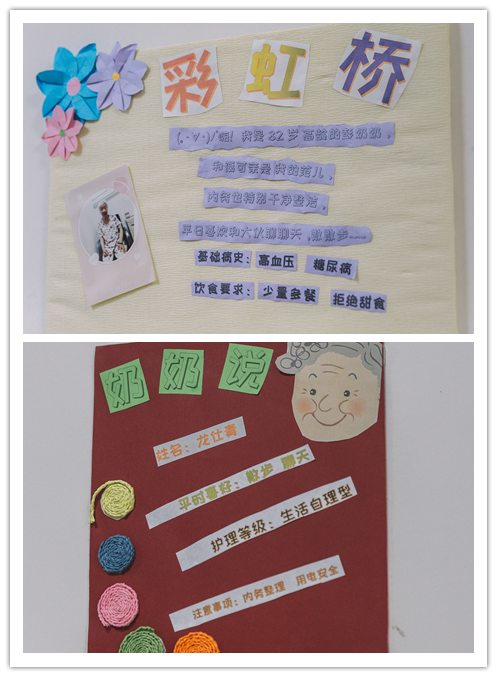 彩虹桥
(.·∀·)ﾉﾞ嗨! 我是 82 岁高龄的薛奶奶。
和蔼可亲是我的范儿。
内务也特别干净整洁。
平日喜欢和大伙聊聊天,散散步……
基础病史: 高血压 糖尿病
饮食要求: 少量多餐 拒绝甜食
奶奶说
姓名:龙仕清
平时喜好:散步 聊天
护理等级:生活自理型
注意事项:内务整理 用电安全